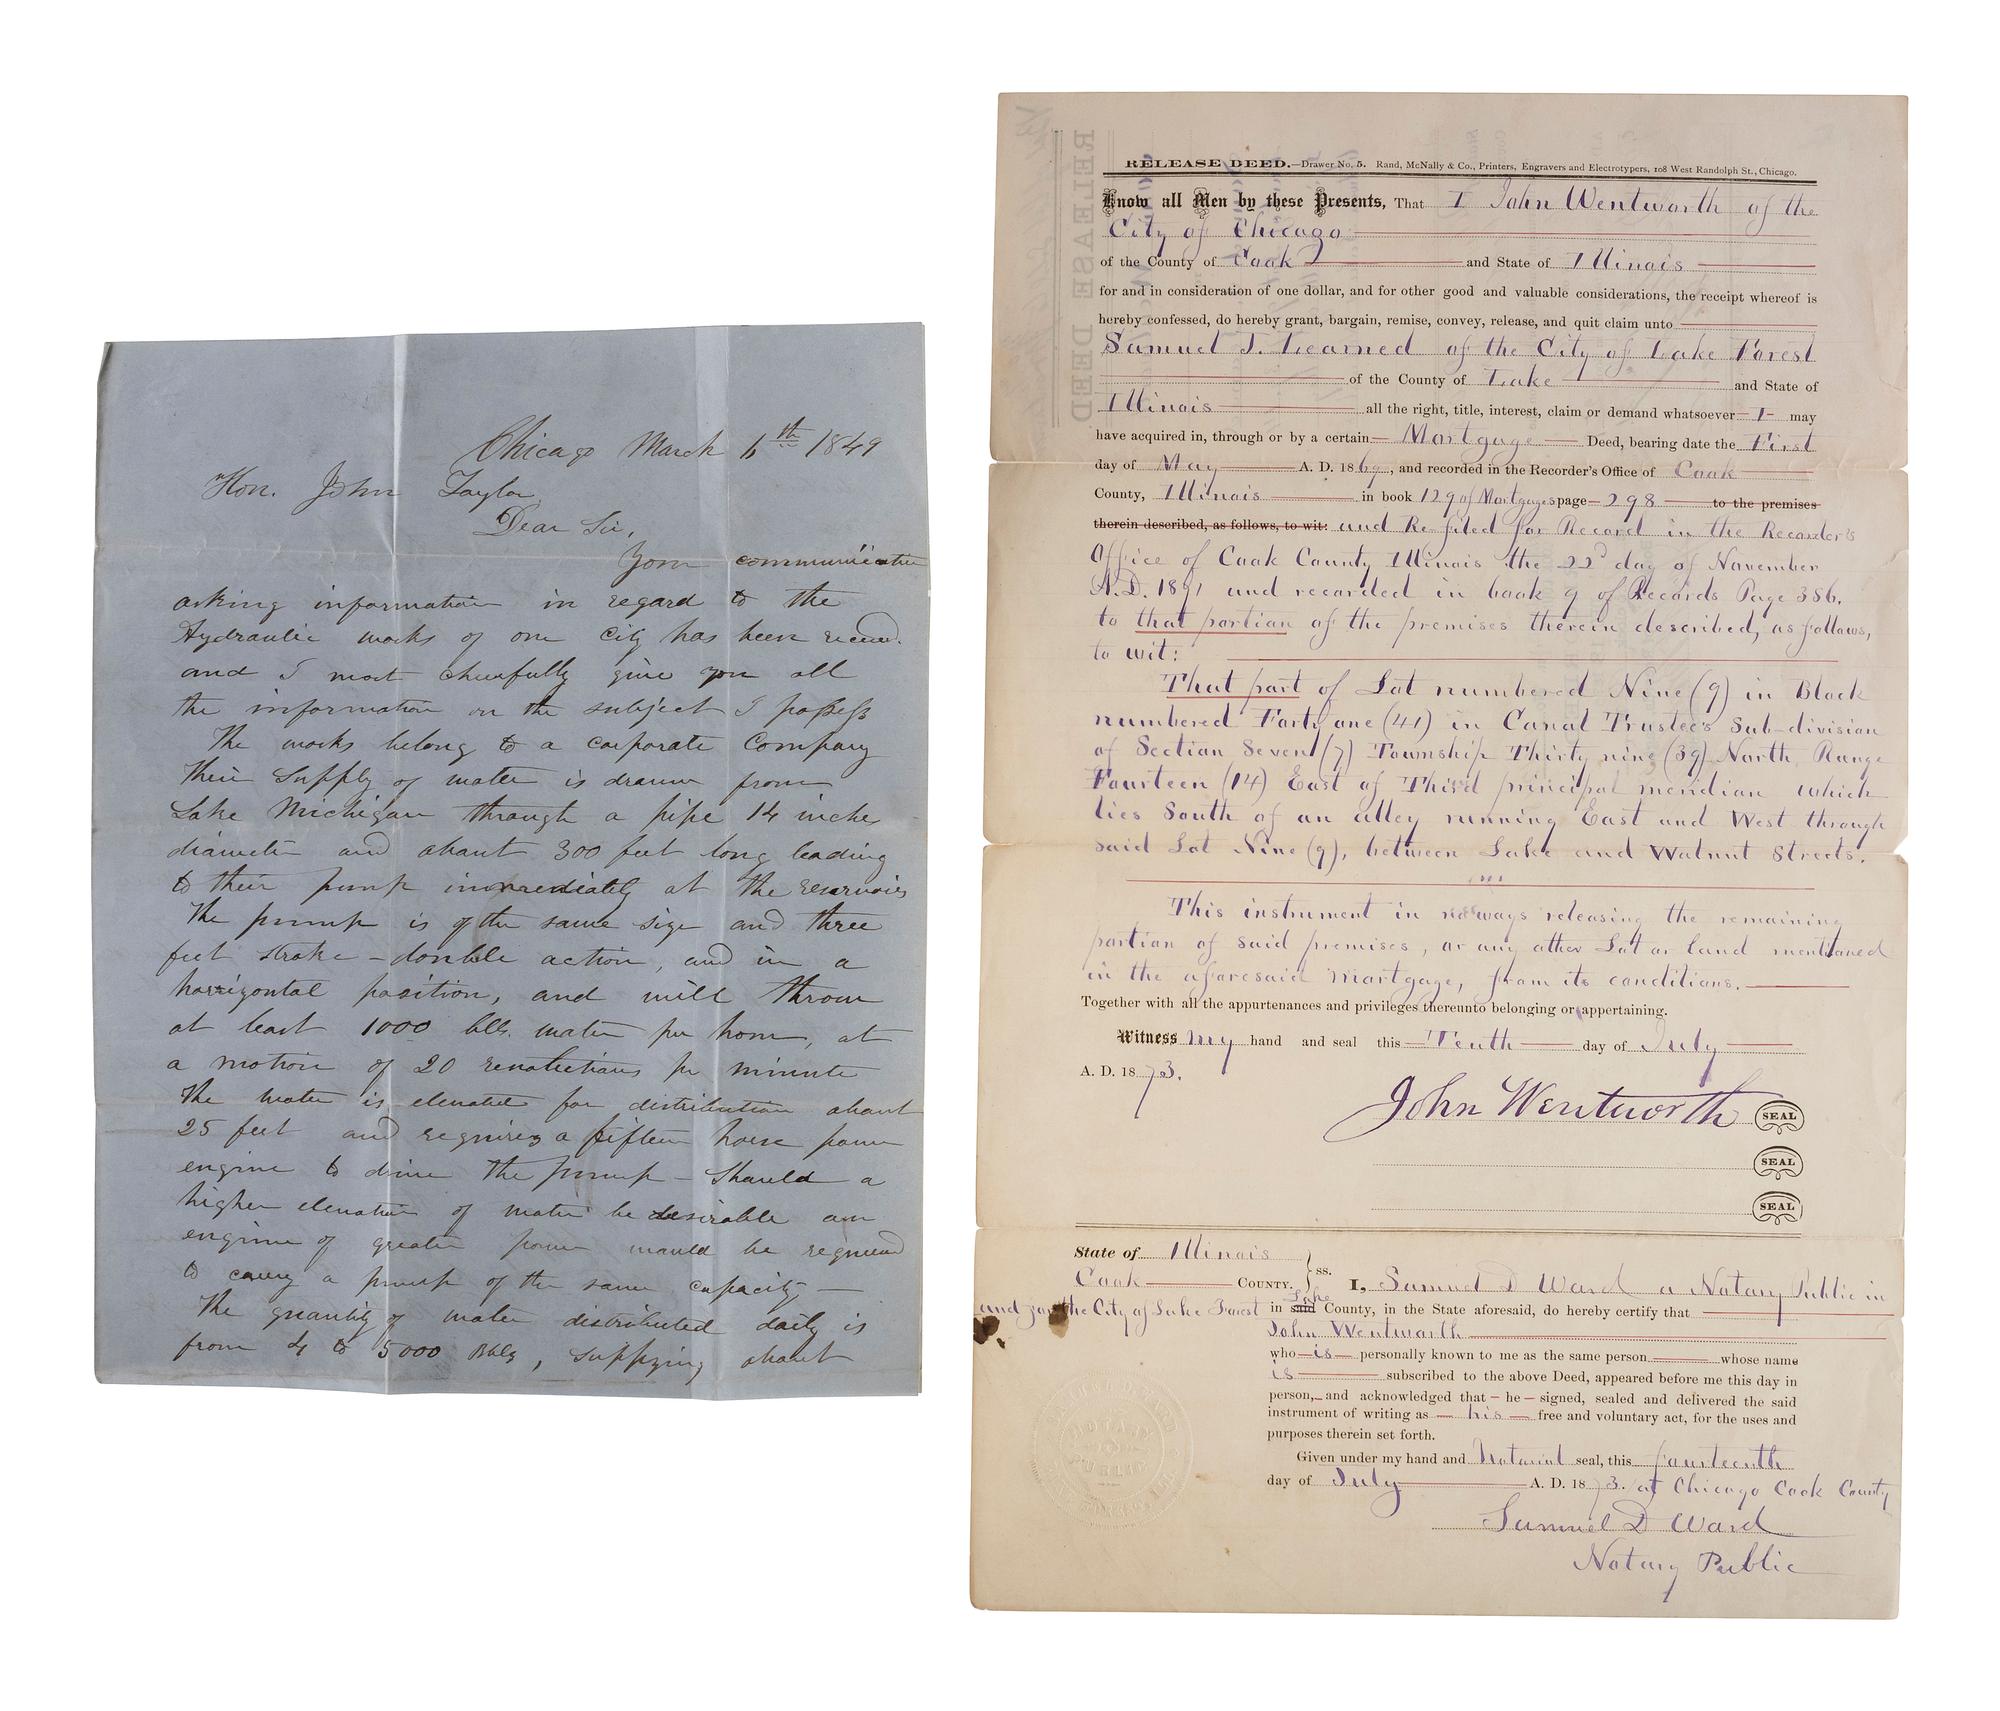 Chicago March 6th 1849
Hon. John Taylor
Dear Sir,
Your communication
asking information in regard to the
Hydraulic works of our city has been recvd.
and I most cheerfully give you all
the information on the subject I possess
The works belong to a corporate Company
their supply of water is drawn from
Lake Michigan through a pipe 14 inches
diameter and about 300 feet long leading
to their pump immediately at the reservoir
The pump is of the same size and three
feet stroke - double action, and in a
horrizontal position, and will throw
at least 1000 blls. water per hour, at
a motion of 20 revolutions pr minute
The water is elevated for distribution about
25 feet and requires a fifteen horse power
engine to drive the pump - Should a
higher elevation of water be desirable an
engine of greater power would be required
to carry a pump of the same capacity -
The quantity of water distributed daily is
from 4 to 5000 Bbls, supplying about
RELEASE DEED.—Drawer No. 5. Rand, McNally & Co., Printers, Engravers and Electrotypers, 108 West Randolph St., Chicago.
Know all Men by these Presents, That I John Wentworth of the
City of Chicago
of the County of Cook and State of Illinois
for and in consideration of one dollar, and for other good and valuable considerations, the receipt whereof is
hereby confessed, do hereby grant, bargain, remise, convey, release, and quit claim unto
Samuel J. Learned of the City of Lake Forest
of the County of Lake and State of
Illinois all the right, title, interest, claim or demand whatsoever I may
have acquired in, through or by a certain Mortgage Deed, bearing date the First
day of May A. D. 1869, and recorded in the Recorder's Office of Cook
County, Illinois in book 129 of Mortgages page 298 to the premises
therein described, as follows, to wit: and Re-filed for Record in the Recorder's
Office of Cook County Illinois the 22d day of November
A.D. 1871 and recorded in book 9 of Records Page 386.
to that portion of the premises therein described, as follows,
to wit:
That part of Lot numbered Nine (9) in Block
numbered Forty one (41) in Canal Trustee's Sub-division
of Section Seven (7) Township Thirty nine (39) North, Range
Fourteen (14) East of Third principal meridian which
lies South of an alley running East and West through
said Lot Nine (9), between Lake and Walnut Streets.
This instrument in no ways releasing the remaining
portion of said premises, or any other Lot or land mentioned
in the aforesaid mortgage, from its conditions.
Together with all the appurtenances and privileges thereunto belonging or appertaining.
Witness my hand and seal this Tenth day of July
A. D. 1873.
John Wentworth SEAL
SEAL
SEAL
State of Illinois
Cook COUNTY. } ss. I, Samuel D Ward a Notary Public in
and for the City of Lake Forest in said Lake County, in the State aforesaid, do hereby certify that
John Wentworth
who is personally known to me as the same person whose name
is subscribed to the above Deed, appeared before me this day in
person, and acknowledged that he signed, sealed and delivered the said
instrument of writing as his free and voluntary act, for the uses and
purposes therein set forth.
Given under my hand and Notarial seal, this fourteenth
day of July A. D. 1873. at Chicago Cook County
Samuel D Ward
Notary Public
NOTARY
PUBLIC
RELEASE DEED